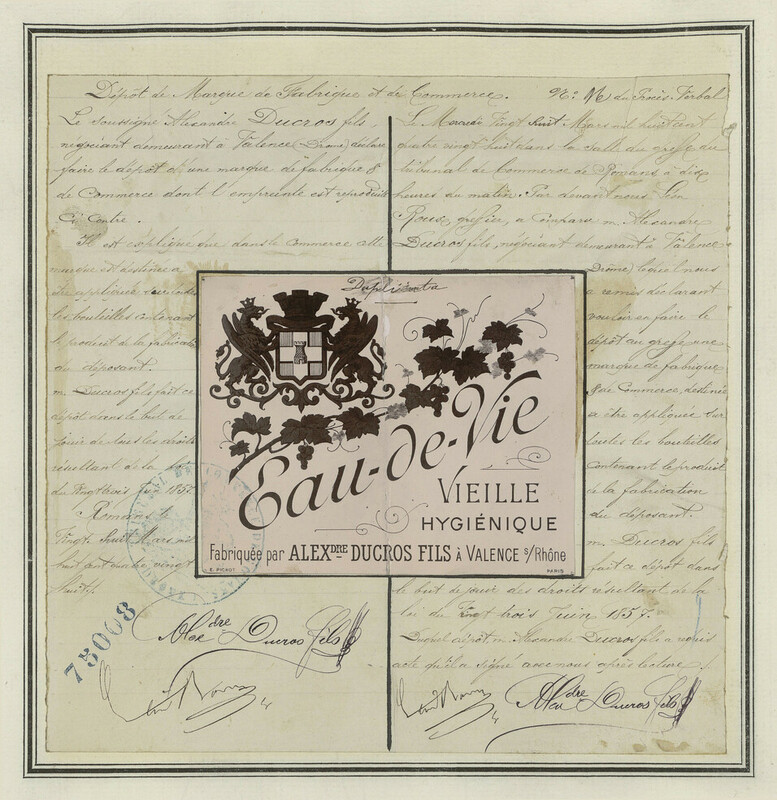 Dépôt de Marque de Fabrique et de Commerce.
Le soussigné Alexandre Ducros fils,
négociant demeurant à Valence (Drôme) déclare
faire le dépôt d'une marque de fabrique &
de Commerce dont l'empreinte est reproduite
Ci Contre.
Il est expliqué que dans le commerce cette
marque est destinée à
être appliquée sur
les bouteilles contenant
le produit de la fabrication
du déposant.
M. Ducros fils fait ce
dépôt dans le but de
jouir de tous les droits
résultant de la loi
du Vingt trois Juin 1857.
Romans le
Vingt huit Mars mil
huit cent quatre vingt
huit.
Alexdre Ducros fils
75008
N° du Procès-Verbal
Le Mercredi Vingt huit Mars mil huit cent
quatre vingt huit dans la salle du greffe du
tribunal de Commerce de Romans à dix
heures du matin. Par devant nous
Roux, greffier, a comparu M. Alexandre
Ducros fils, négociant demeurant à Valence
(Drôme) lequel nous
a remis déclarant
vouloir faire le
dépôt au greffe une
marque de fabrique
& de Commerce, destinée
à être appliquée sur
toutes les bouteilles
contenant le produit
de la fabrication
du déposant.
M. Ducros fils
fait ce dépôt dans
le but de jouir des droits résultant de la
loi du Vingt trois Juin 1857.
Duquel dépôt, M. Alexandre Ducros fils a requis
acte qu'il a signé avec nous après lecture.
Alexdre Ducros fils
Duplicata
Eau-de-Vie
VIEILLE
HYGIÉNIQUE
Fabriquée par ALEXDRE DUCROS FILS à VALENCE s/Rhône
E. PICHOT PARIS